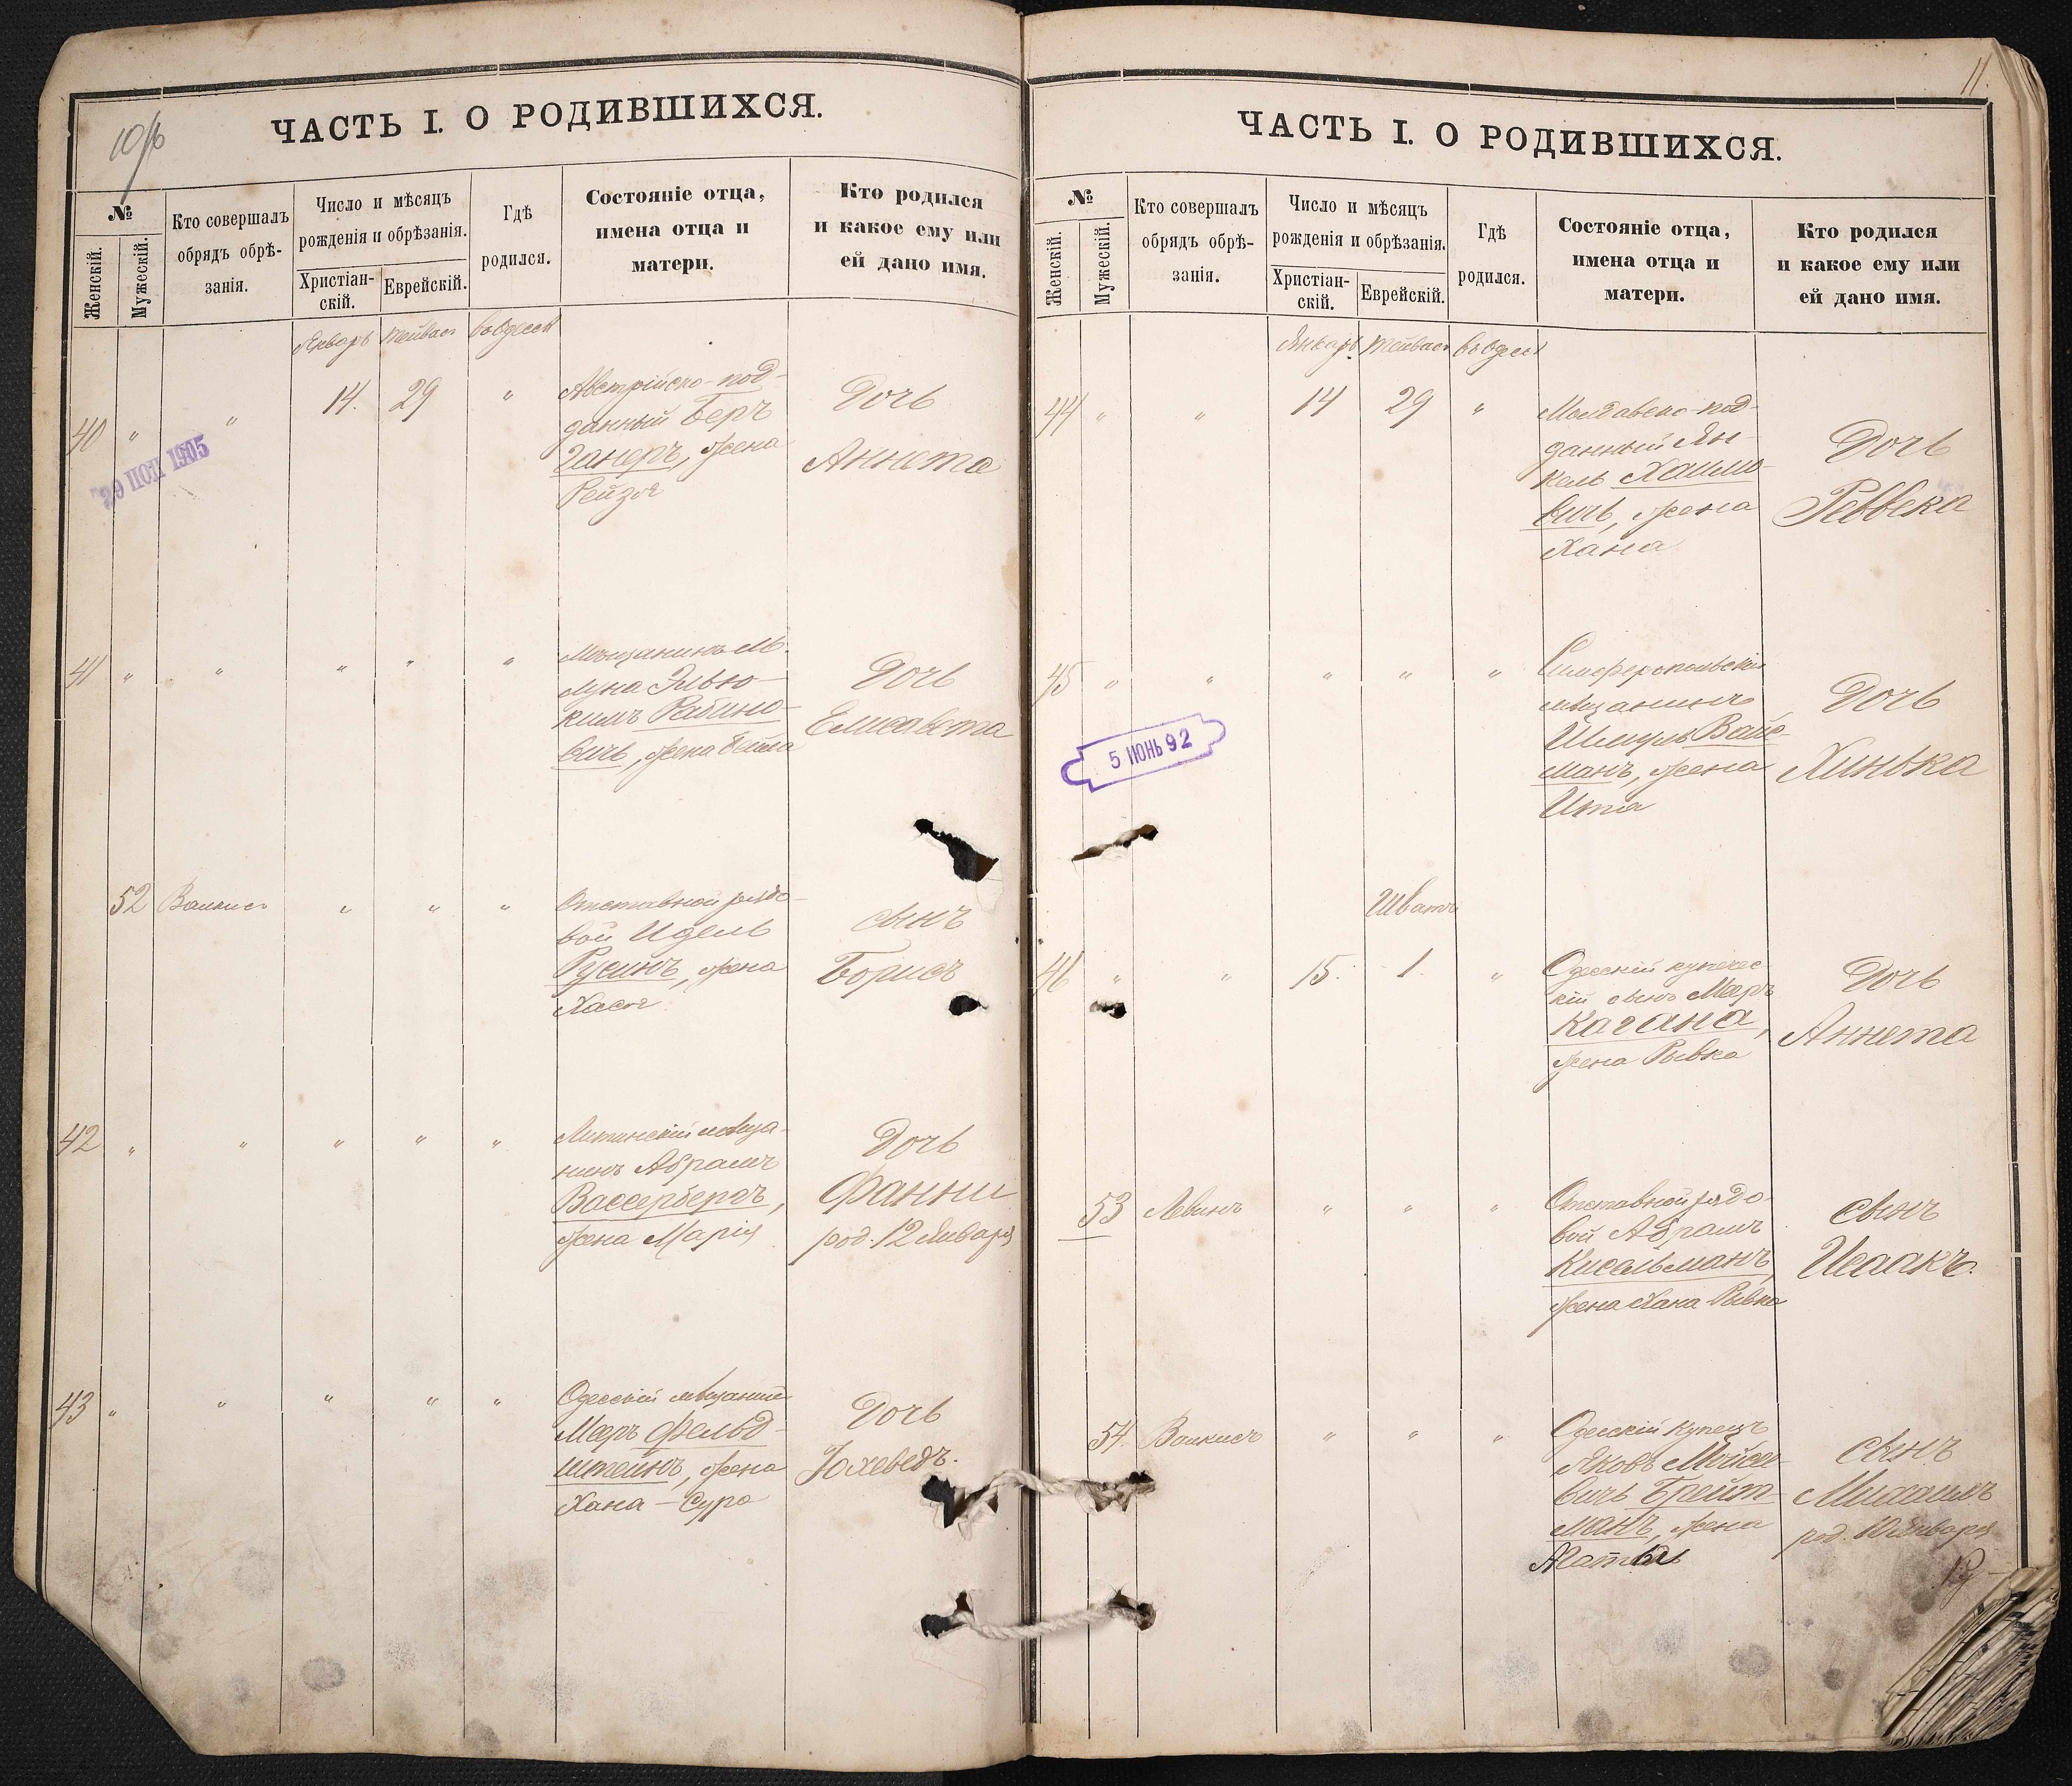 10/б
ЧАСТЬ I. О РОДИВШИХСЯ.
№
Женскій.
Мужескій.
Кто совершалъ
обрядъ обрѣ-
занія.
Число и мѣсяцъ
рожденія и обрѣзанія.
Христіан-
скій.
Еврейскій.
Гдѣ
родился.
Состояніе отца,
имена отца и
матери.
Кто родился
и какое ему или
ей дано имя.
Январь Тейвасъ въ Одессѣ
40 " " 14. 29 "
Австрійско-под-
данный Беръ
Ганеръ, жена
Рейзя
Дочь
Аннета
29 ІЮЛ 1905
41 " " " " "
Мѣщанинъ м.
Луна Элью-
кимъ Рабино-
вичь, жена Бейла
Дочь
Елисавета
52 Валкисъ " " "
Отставной рядо-
вой Идель
Русинъ, жена
Хася
сынъ
Борисъ
42 " " " " "
Литинскій мѣща-
нинъ Абрамъ
Вассербергъ,
жена Марія
Дочь
Фанни
род. 12 Января
43 " " " " "
Одесскій мѣщанинъ
Меръ Фельд-
штейнъ, жена
Хана-Сура
Дочь
Іохеведъ.
11.
ЧАСТЬ I. О РОДИВШИХСЯ.
№
Женскій.
Мужескій.
Кто совершалъ
обрядъ обрѣ-
занія.
Число и мѣсяцъ
рожденія и обрѣзанія.
Христіан-
скій.
Еврейскій.
Гдѣ
родился.
Состояніе отца,
имена отца и
матери.
Кто родился
и какое ему или
ей дано имя.
Январь Тейвасъ въ Одессѣ
44 " " 14 29 "
Молдавско-под-
данный Ян-
кель Хаимо-
вичь, жена
Хана
Дочь
Реввека
45 " " " " "
Симферопольскій
мѣщанинъ
Шмуль Вайс-
манъ, жена
Ита
Дочь
Хинька
5 ІЮНЬ 92
Шватъ
46 " " 15. 1. "
Одесскій купечес-
кій сынъ Меръ
Кагана,
жена Рывка
Дочь
Аннета
53 Левинъ " " "
Отставной рядо-
вой Абрамъ
Кисельманъ,
жена Хана Рывка
сынъ
Исаакъ.
54. Валкисъ " " "
Одесскій купецъ
Яковъ Мойсе-
вичь Брейт-
манъ, жена
сынъ
Михаилъ
род. Января